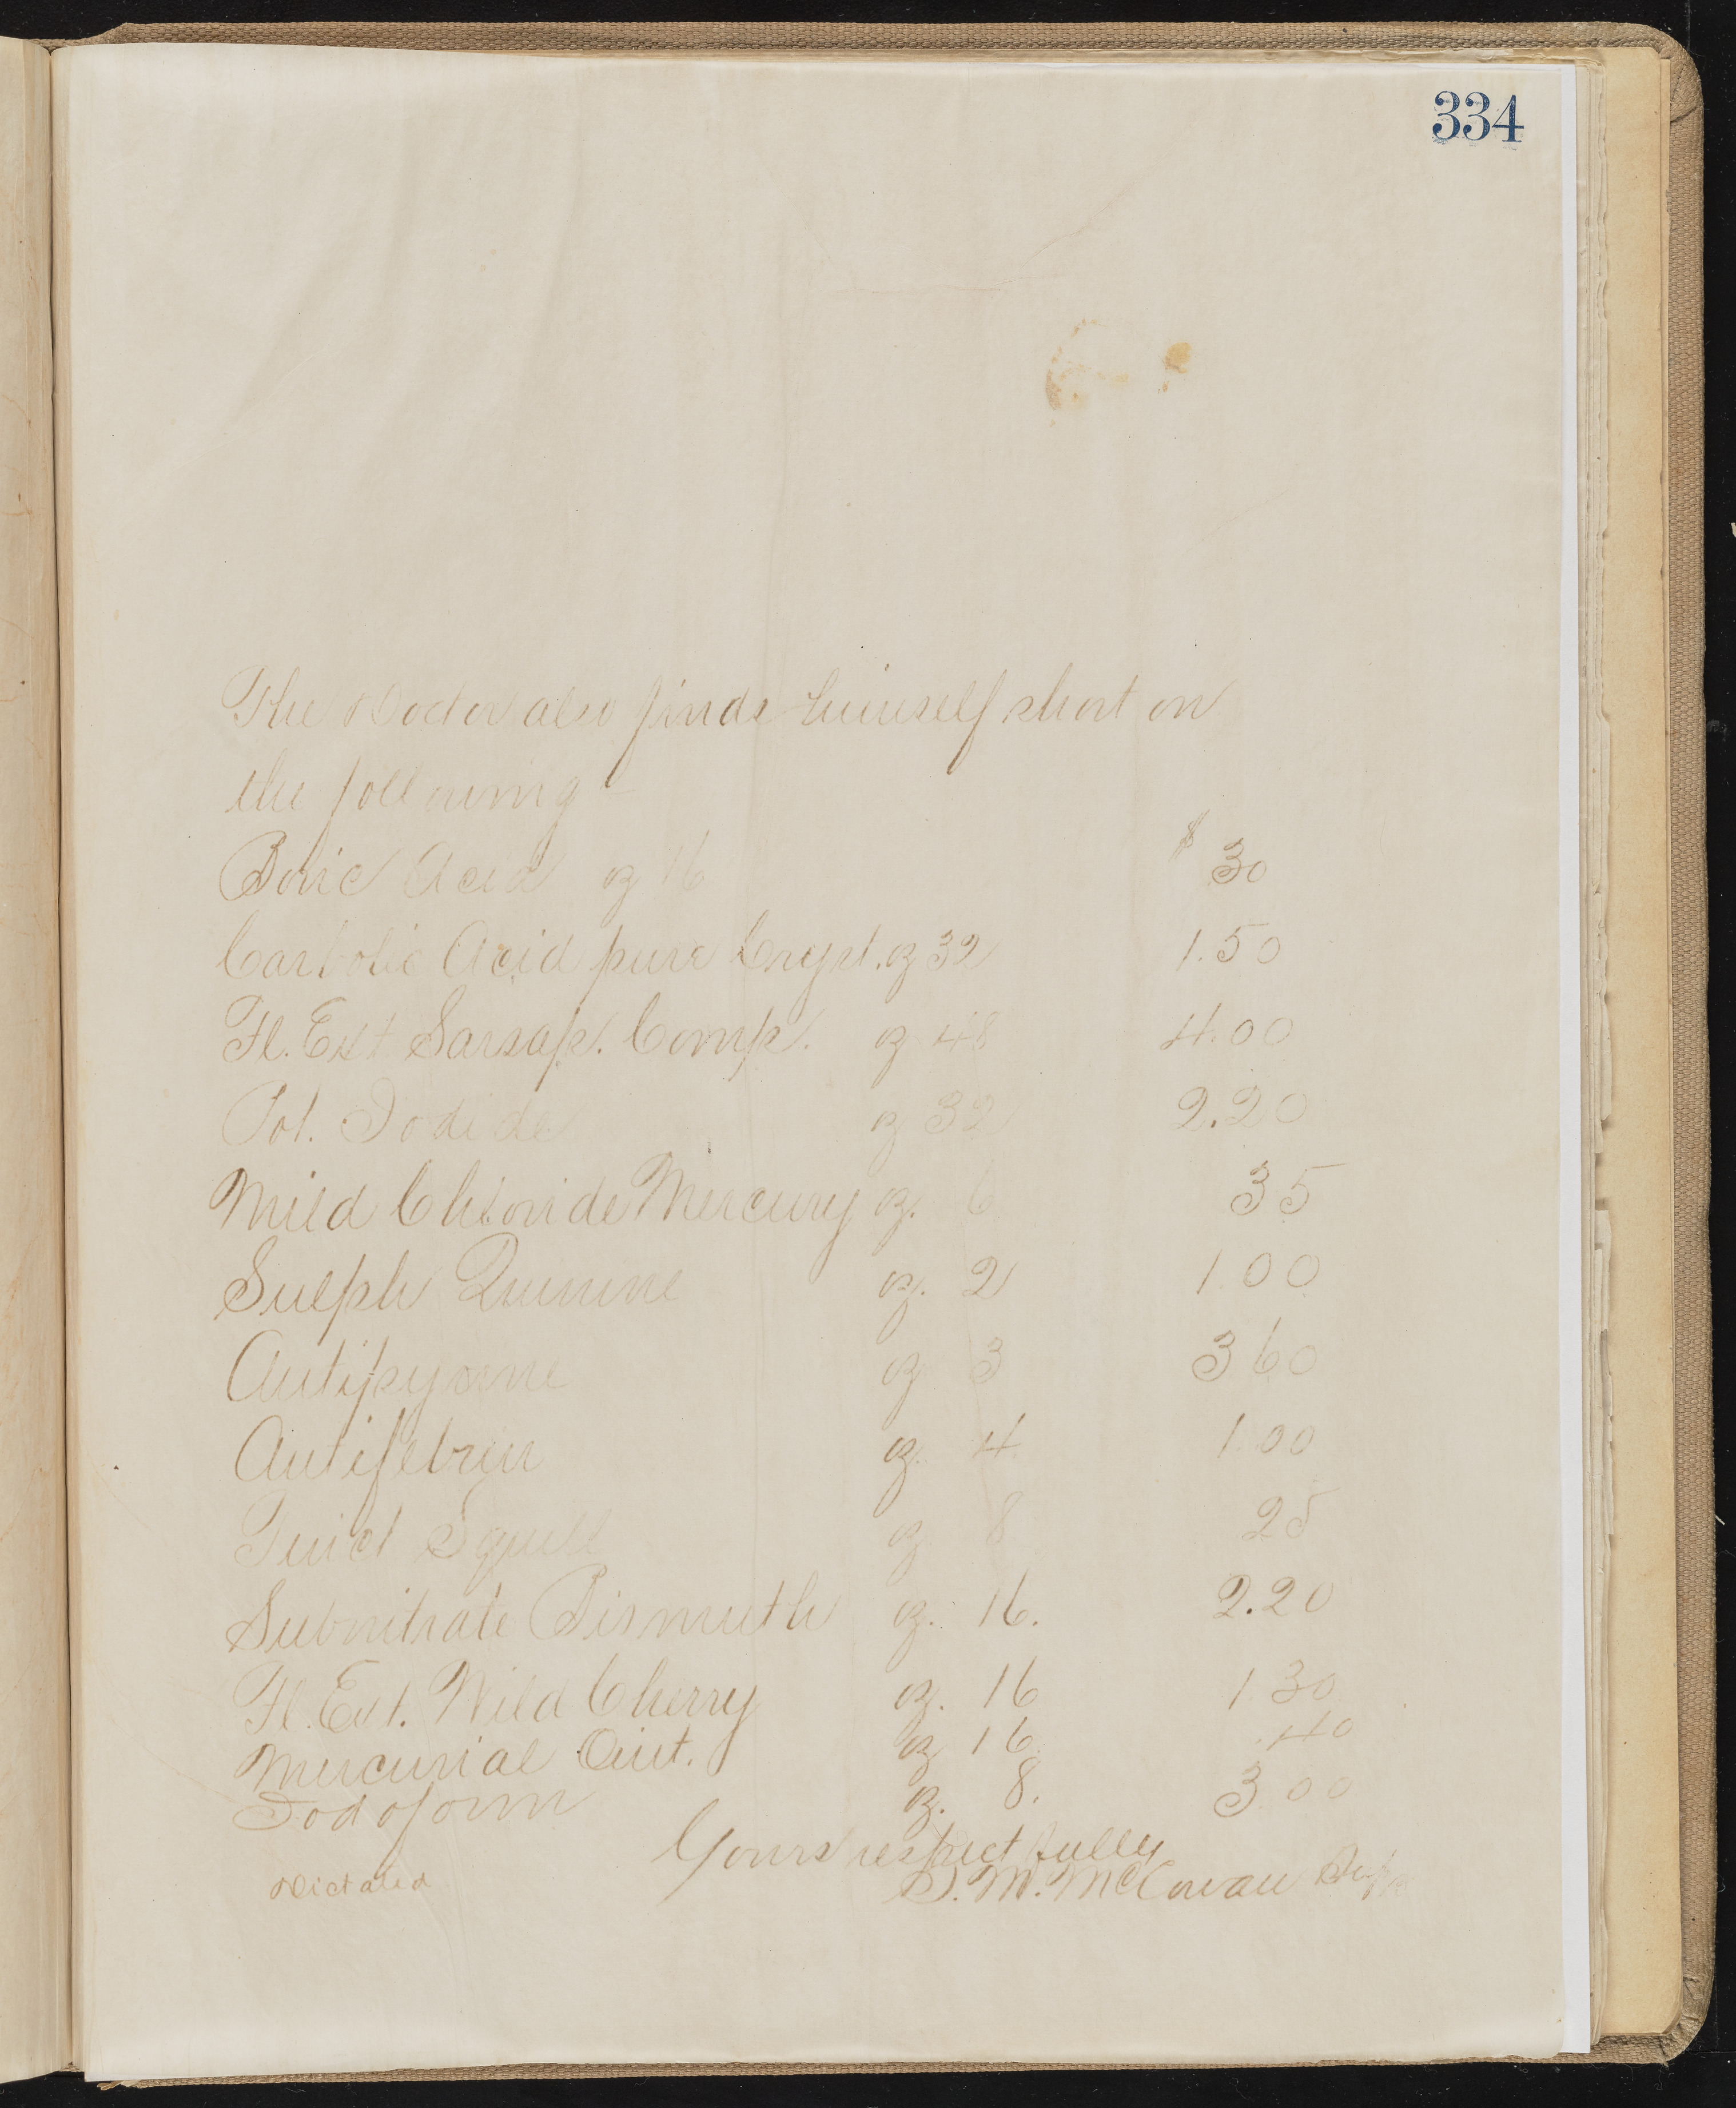 334
The Doctor also finds himself short on
the following -
Boric Acid oz 16 $ 30
Carbolic Acid pure Cryst. oz 32 1.50
Fl. Ext Sarsap. Comp. oz 48 4.00
Pot. Iodide oz 32 2.20
Mild Chloride Mercury oz. 6 35
Sulph Quinine oz. 2 1.00
Antipyrine oz 3 3 60
Antifebrin oz. 4 1.00
Tinct Squill oz 8 25
Subnitrate Bismuth oz. 16. 2.20
Fl. Ext. Wild Cherry oz. 16 1 30
Mercurial Oint. oz 16 .40
Iodoform oz. 8. 3 00
Yours respectfully
Dictated S. M. McCowan Supt